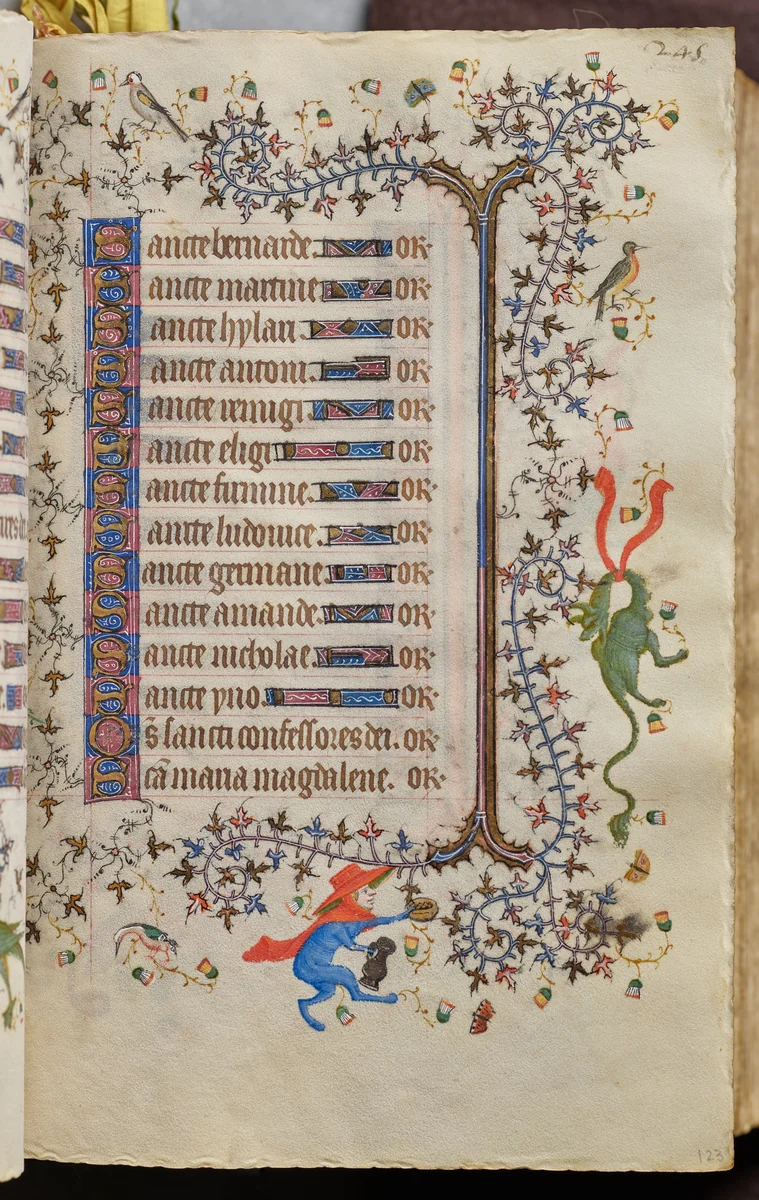 245
Sancte bernarde. OR.
Sancte martine OR.
Sancte hylari. OR.
Sancte antoni. OR.
Sancte remigi. OR.
Sancte eligi OR.
Sancte firmine. OR.
Sancte ludouice. OR.
Sancte germane. OR.
Sancte amande. OR.
Sancte nicholae. OR.
Sancte yuo. OR.
Oms̄ sancti confessores dei. OR.
Scā maria magdalene. OR.
123